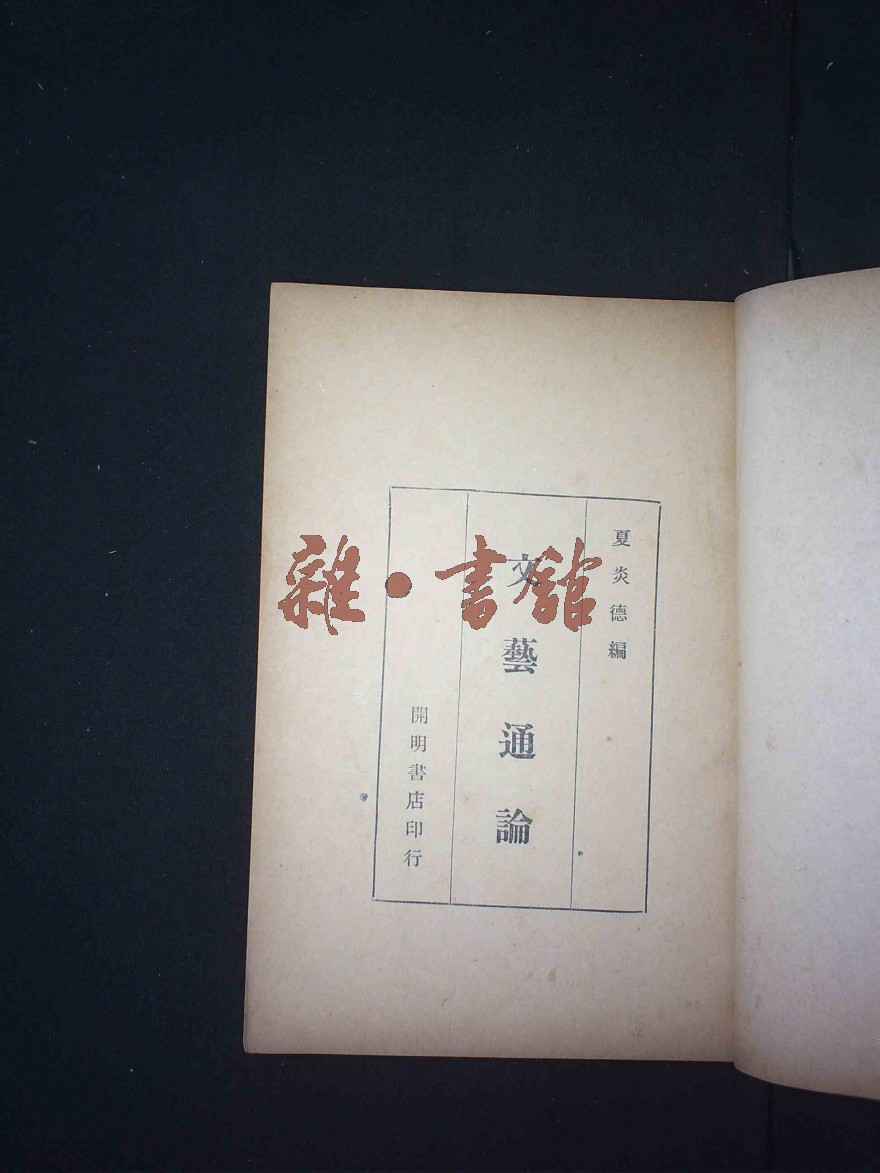 夏炎德編
文藝通論
開明書店印行
雜·書館